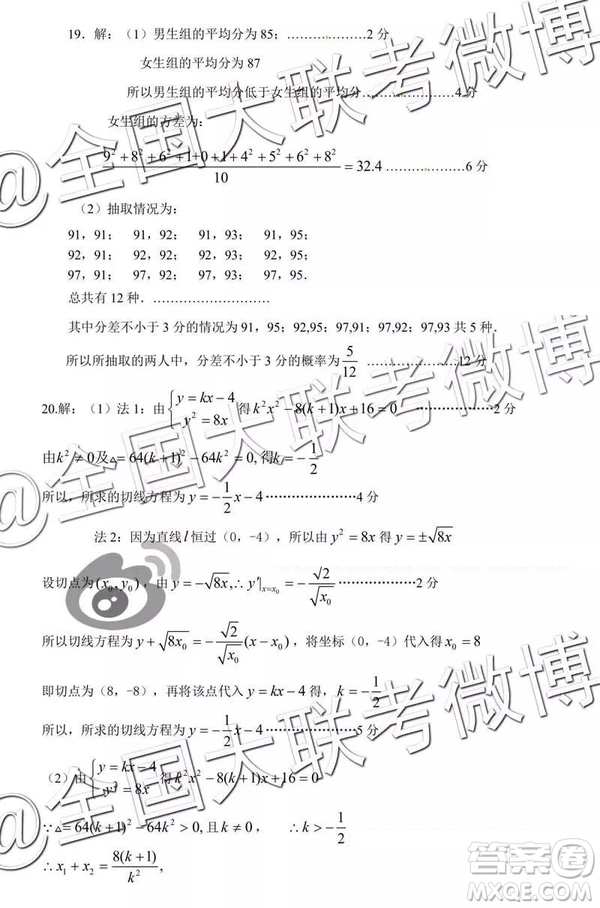 19．解：（1）男生组的平均分为 85；………………2 分
女生组的平均分为 87
所以男生组的平均分低于女生组的平均分………………4 分
女生组的方差为：
(9²+8²+6²+1+0+1+4²+5²+6²+8²)/10=32.4 ………………6 分
（2）抽取情况为：
91，91； 91，92； 91，93； 91，95；
92，91； 92，92； 92，93； 92，95；
97，91； 97，92； 97，93； 97，95.
总共有 12 种．………………………
其中分差不小于 3 分的情况为 91，95；92,95；97,91；97,92；97,93 共 5 种．
所以所抽取的两人中，分差不小于 3 分的概率为 5/12 ………………12 分
20.解：（1）法 1：由{y=kx-4 y²=8x 得 k²x²-8(k+1)x+16=0 ………………2 分
由k²≠0及△=64(k+1)²-64k²=0,得k=-1/2
所以，所求的切线方程为 y=-1/2x-4 ………………4 分
法 2：因为直线 l 恒过（0，-4），所以由 y²=8x 得 y=±√8x
设切点为(x₀,y₀)，由 y=-√8x,∴y′|x=x₀=-√2/√x₀ ………………2 分
所以切线方程为 y+√8x₀=-√2/√x₀(x-x₀)，将坐标（0，-4）代入得 x₀=8
即切点为（8，-8），再将该点代入 y=kx-4 得，k=-1/2
所以，所求的切线方程为 y=-1/2x-4 ………………5 分
（2）由{y=kx-4 y²=8x 得 k²x²-8(k+1)x+16=0
∵△=64(k+1)²-64k²>0,且 k≠0， ∴k>-1/2
∴x₁+x₂=8(k+1)/k²,
@全国大联考微博
@全国大联考微博
@全国大联考微博
答案卷
MXQE.COM